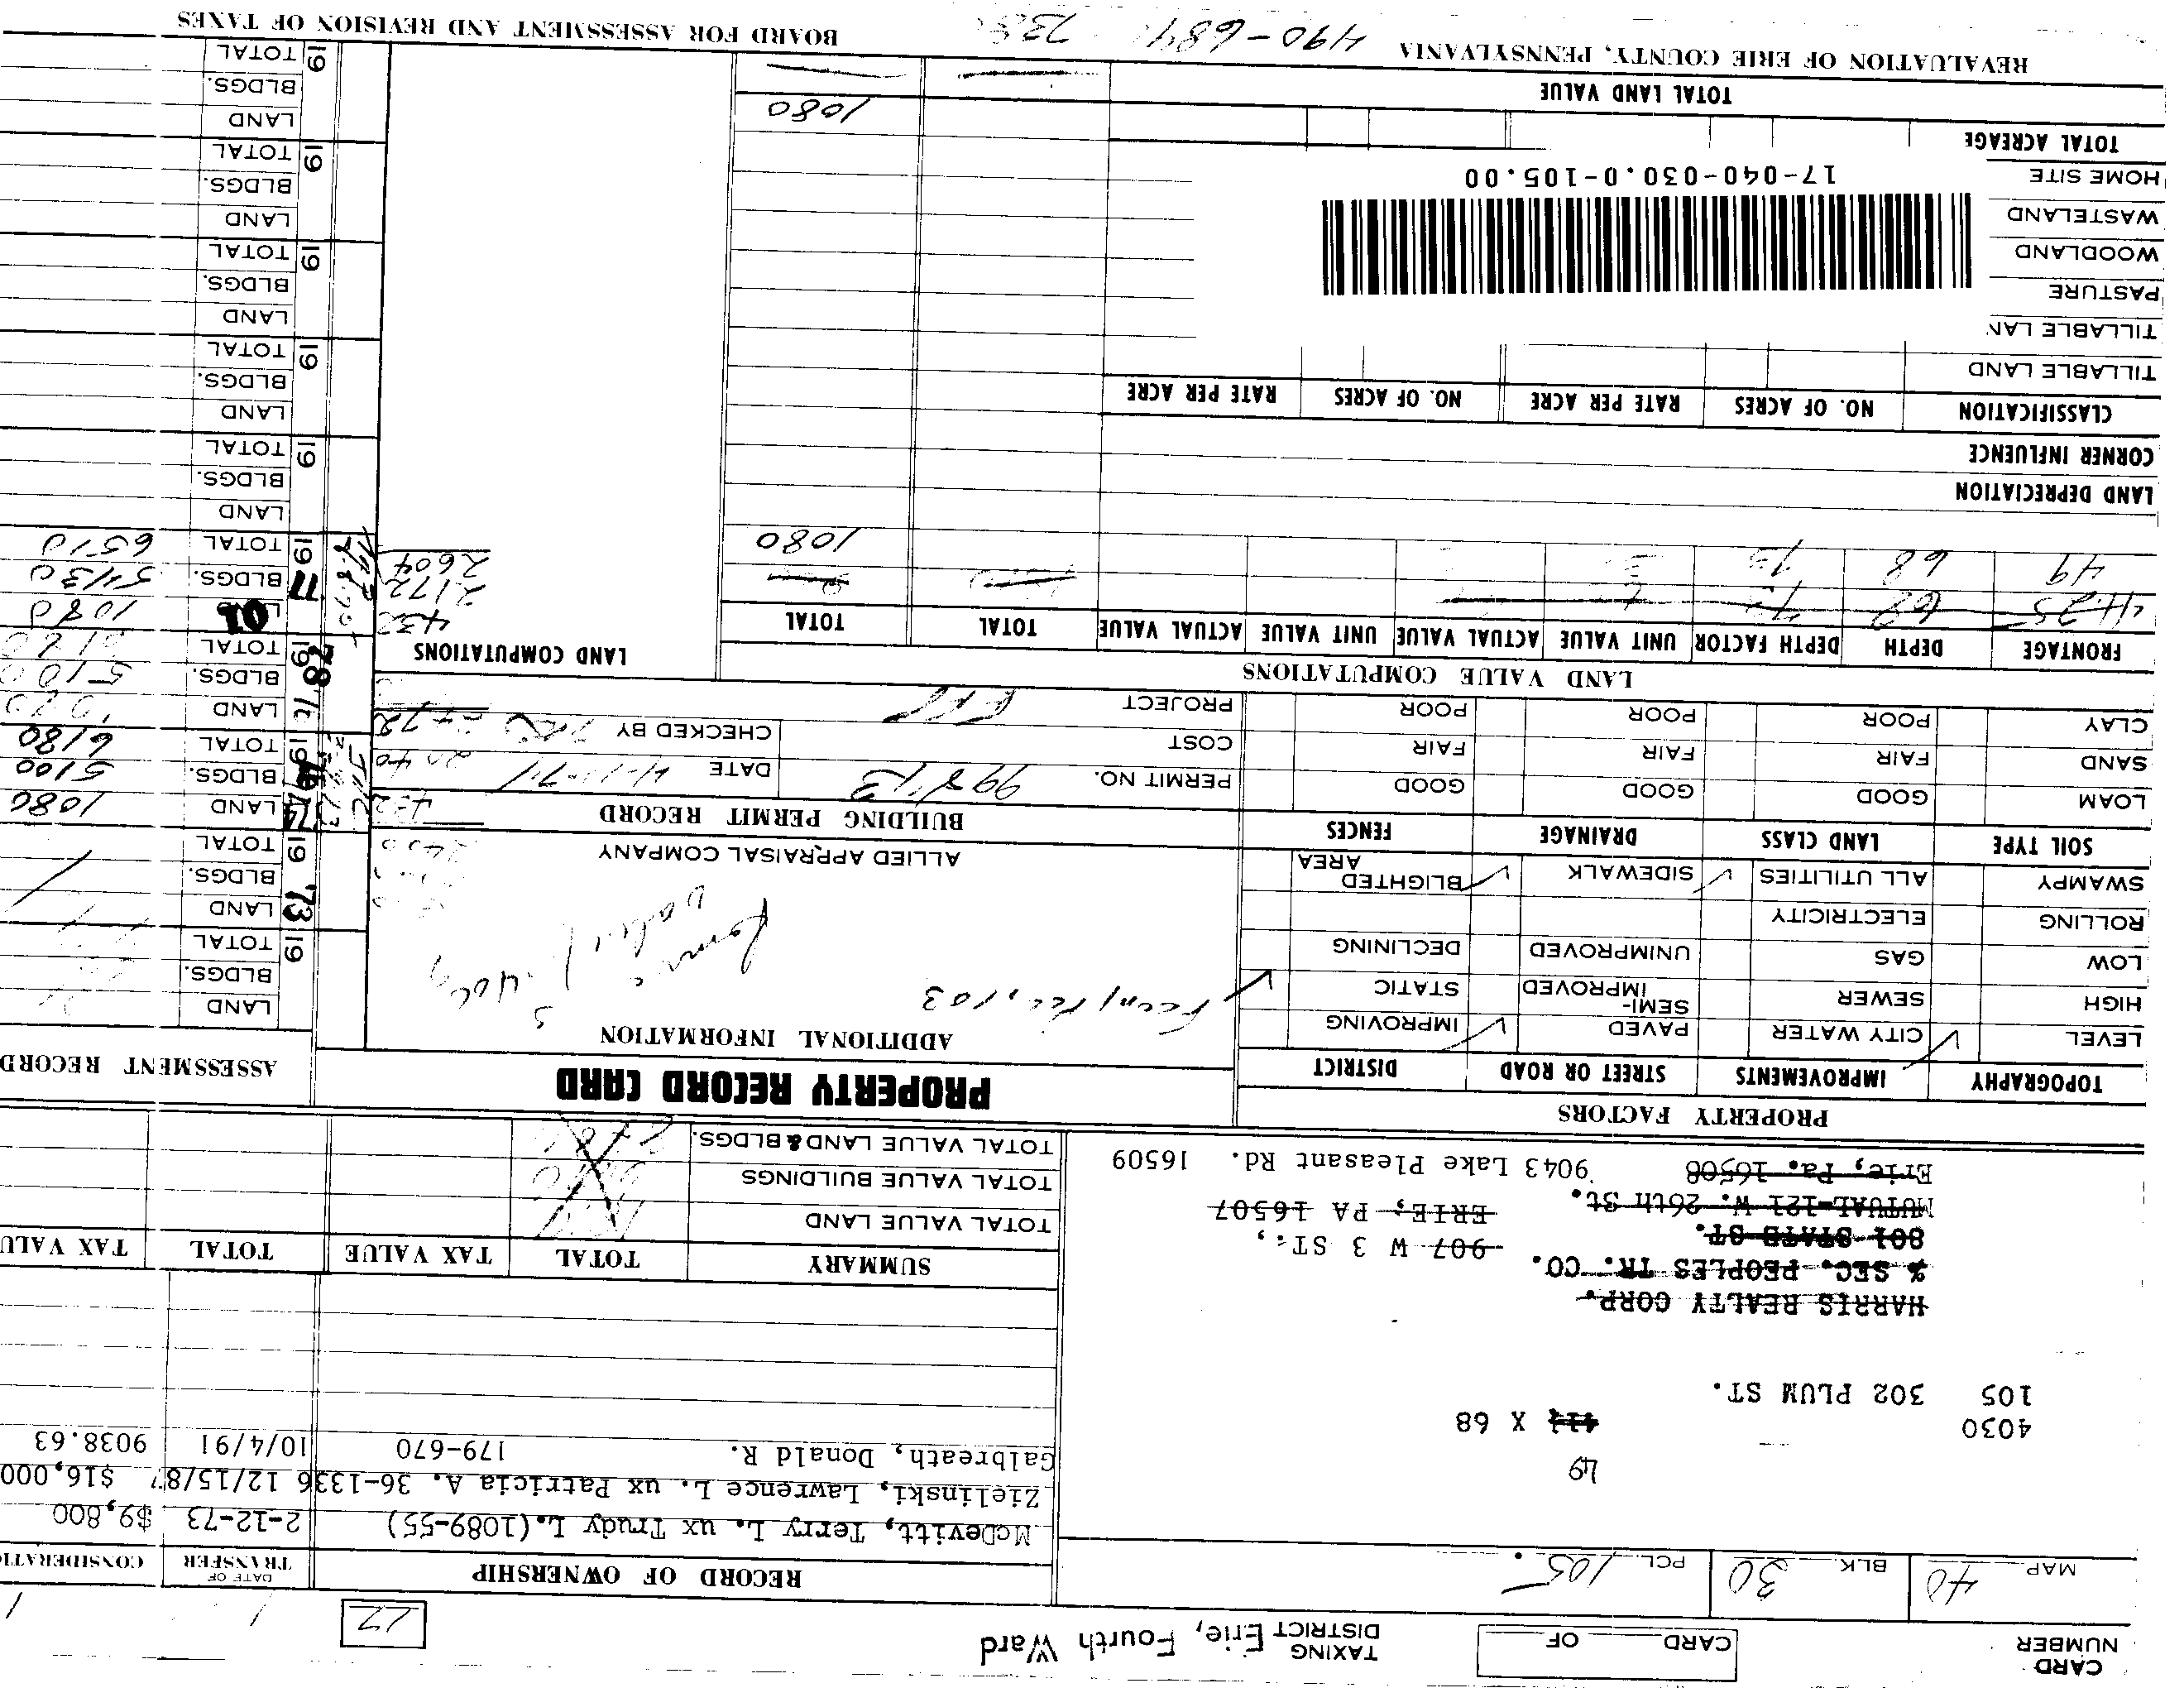 CARD NUMBER
CARD OF
TAXING DISTRICT Erie, Fourth Ward
17
MAP 40 BLK. 30 PCL. 105.
RECORD OF OWNERSHIP
DATE OF TRANSFER
CONSIDERATI
McDevitt, Terry L. ux Trudy L. (1089-55) 2-12-73 $9,800
Zielinski, Lawrence L. ux Patricia A. 36-1336 12/15/87 $16,000
Galbreath, Donald R. 179-670 10/4/91 9038.63
49
4030 X 68
105 302 PLUM ST.
HARRIS REALTY CORP.
% SEC. PEOPLES TR. CO.
801 STATE ST.
MUTUAL-121 W. 26th St.
Erie, Pa. 16508
907 W 3 ST.,
ERIE, PA 16507
9043 Lake Pleasant Rd. 16509
SUMMARY TOTAL TAX VALUE TOTAL TAX VALU
TOTAL VALUE LAND
TOTAL VALUE BUILDINGS
TOTAL VALUE LAND & BLDGS.
PROPERTY FACTORS
TOPOGRAPHY IMPROVEMENTS STREET OR ROAD DISTRICT
LEVEL CITY WATER PAVED IMPROVING
HIGH SEWER SEMI-IMPROVED STATIC
LOW GAS UNIMPROVED DECLINING
ROLLING ELECTRICITY
SWAMPY ALL UTILITIES SIDEWALK BLIGHTED AREA
SOIL TYPE LAND CLASS DRAINAGE FENCES
LOAM GOOD GOOD GOOD
SAND FAIR FAIR FAIR
CLAY POOR POOR POOR
PROPERTY RECORD CARD
ADDITIONAL INFORMATION
ALLIED APPRAISAL COMPANY
BUILDING PERMIT RECORD
PERMIT NO. DATE
COST CHECKED BY
PROJECT
ASSESSMENT RECORD
19 LAND
BLDGS.
TOTAL
19 73 LAND
BLDGS.
TOTAL
19 74 LAND 1080
BLDGS. 5100
TOTAL 6180
19 78 LAND 1080
BLDGS. 5100
TOTAL
19 77 01 1080
BLDGS. 5430
TOTAL 6510
19 LAND
BLDGS.
TOTAL
19 LAND
BLDGS.
TOTAL
19 LAND
BLDGS.
TOTAL
19 LAND
BLDGS.
TOTAL
19 LAND
BLDGS.
TOTAL
LAND VALUE COMPUTATIONS
LAND COMPUTATIONS
FRONTAGE DEPTH DEPTH FACTOR UNIT VALUE ACTUAL VALUE UNIT VALUE ACTUAL VALUE TOTAL TOTAL
41.25 68
49 68 1080
432
2172
2604
LAND DEPRECIATION
CORNER INFLUENCE
CLASSIFICATION NO. OF ACRES RATE PER ACRE NO. OF ACRES RATE PER ACRE
TILLABLE LAND
TILLABLE LAN
PASTURE
WOODLAND
WASTELAND
HOME SITE
17-040-030.0-105.00
TOTAL ACREAGE
TOTAL LAND VALUE 1080
REVALUATION OF ERIE COUNTY, PENNSYLVANIA
490-689
BOARD FOR ASSESSMENT AND REVISION OF TAXES